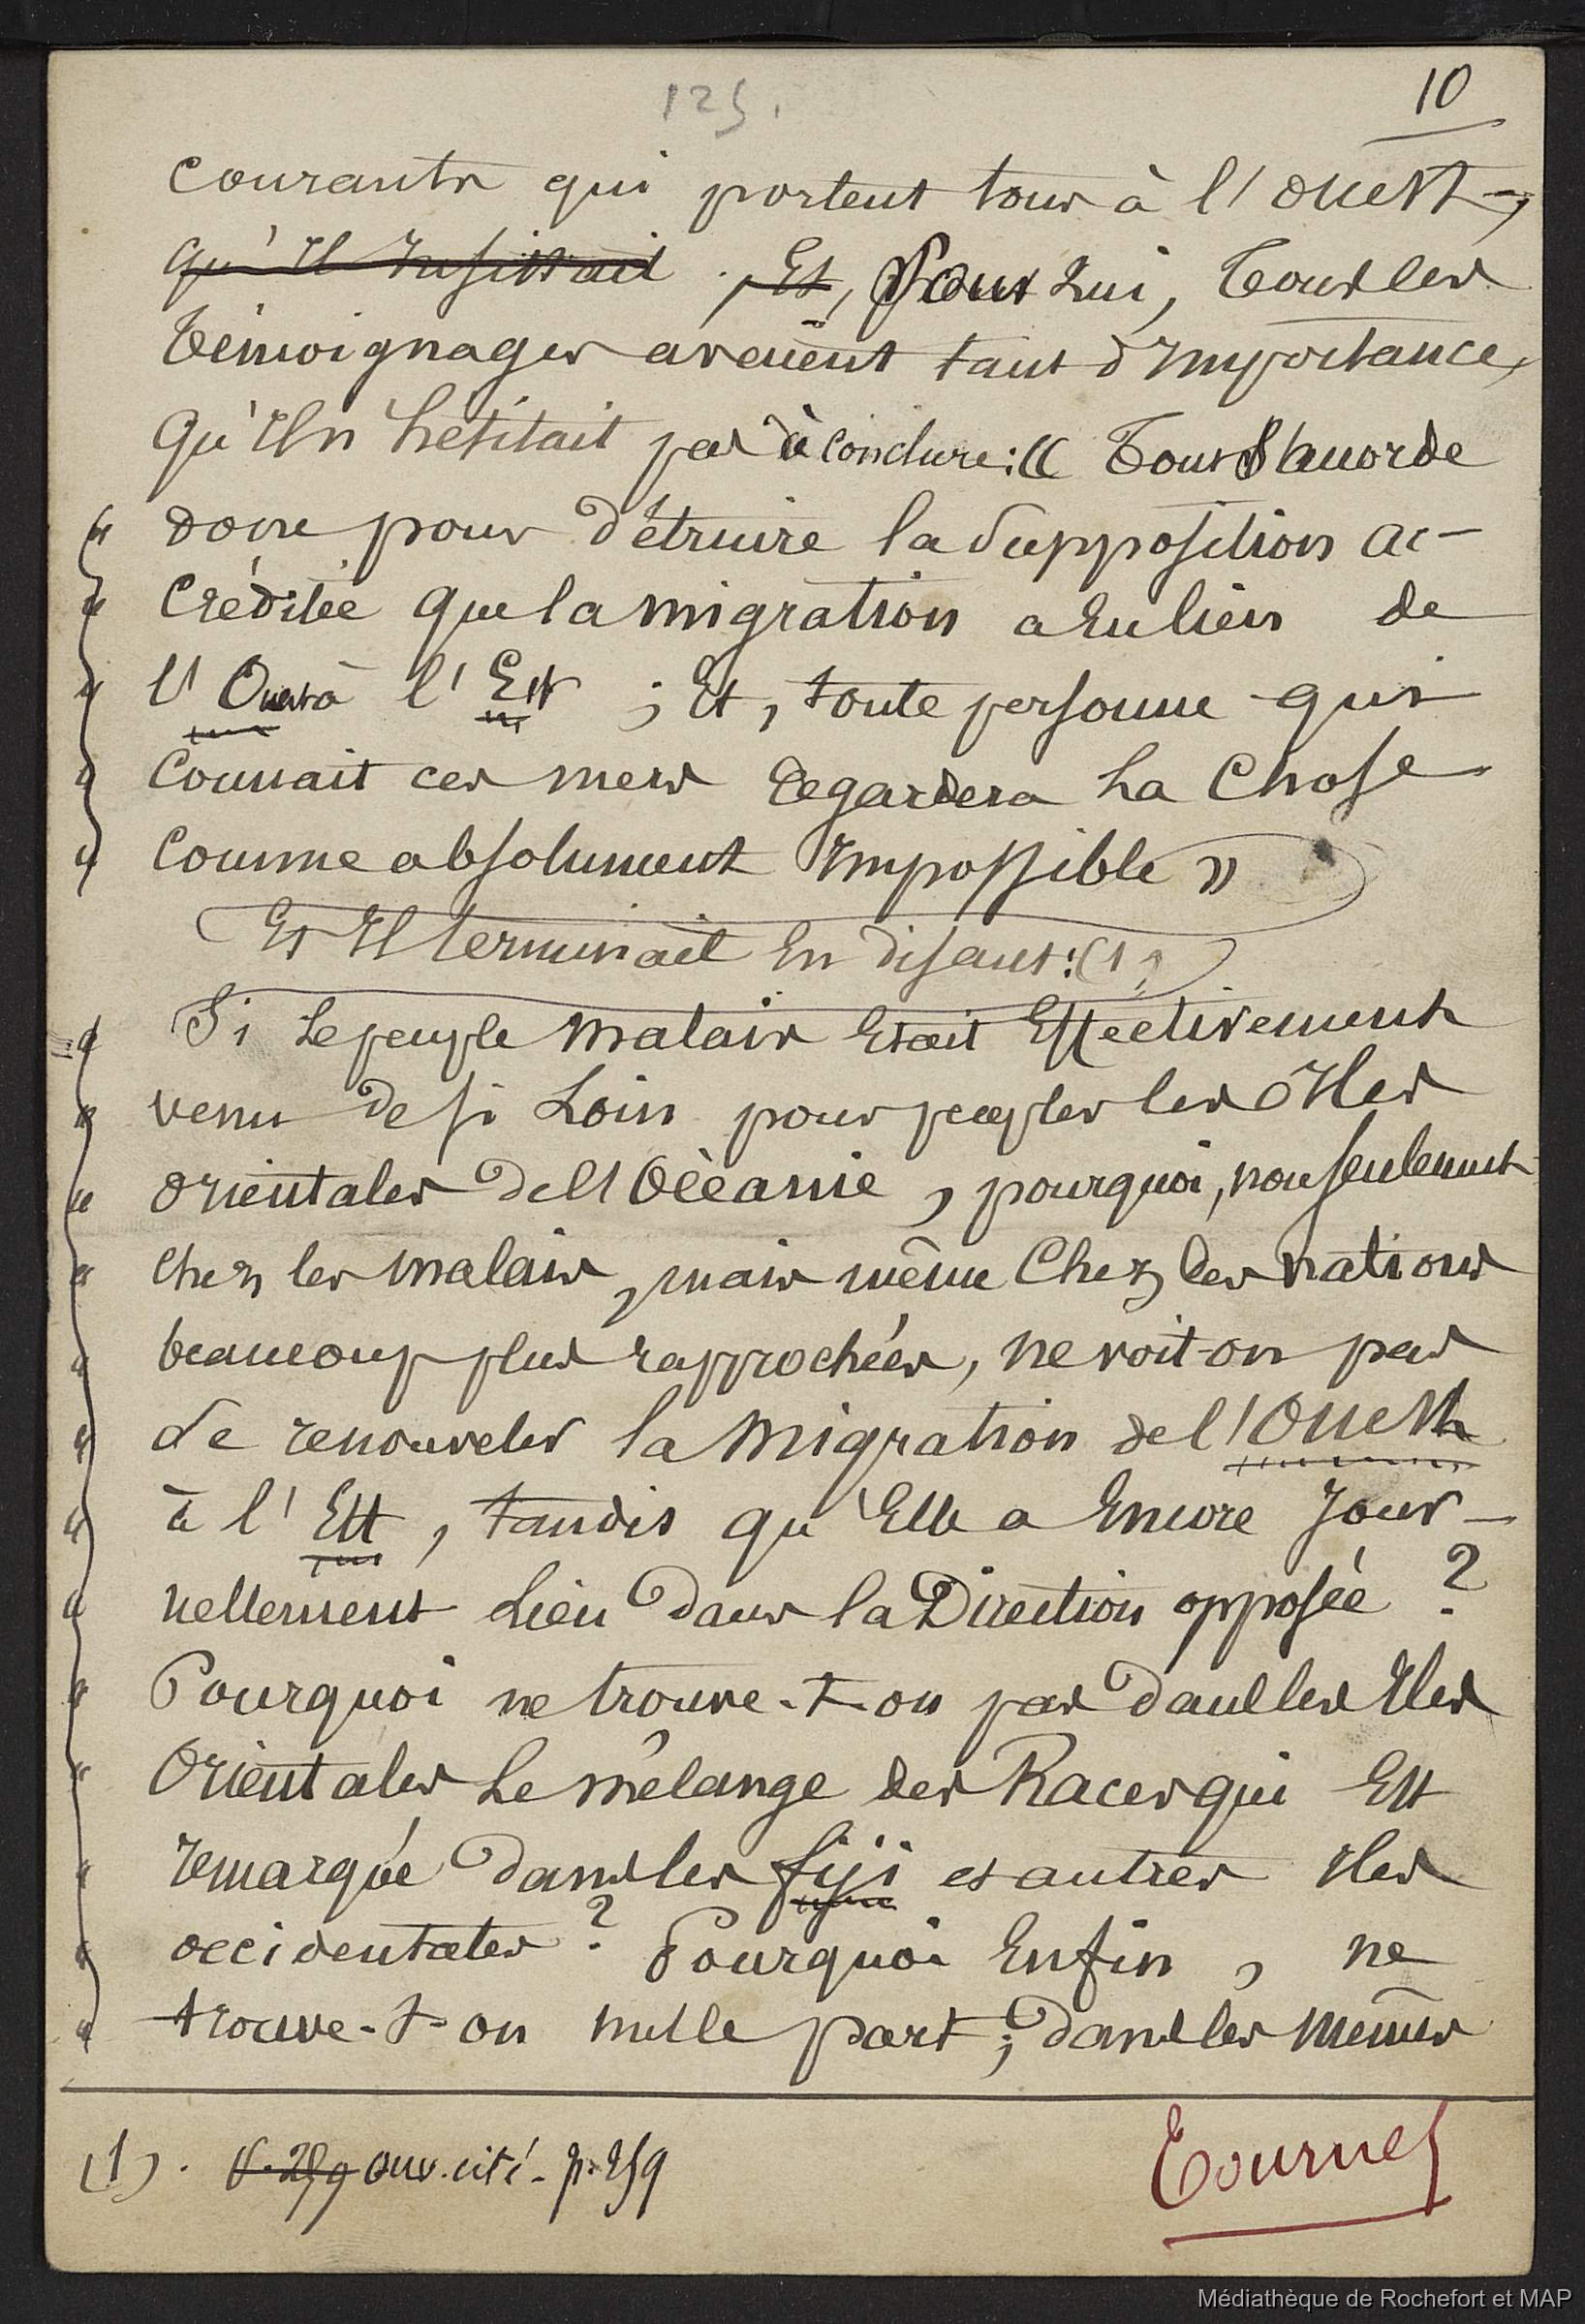 125.
10
courants qui portent tous à l'ouest,
qu'il insistait . Et, Pour Lui, Tous les
témoignages avaient tant d'importance,
qu'Il n'hésitait pas à conclure: « Tout s'accorde
donc pour détruire la supposition ac-
créditée que la migration a eu lieu de
l'Ouest à l'Est ; Et, toute personne qui
connait ces mers regardera La Chose
comme absolument Impossible »
Et Il terminait En disant: (1)
Si Le peuple malais Etait Effectivement
venu de si Loin pour peupler les Iles
orientales de l'Océanie, pourquoi, non seulement
chez les malais, mais même Chez des nations
beaucoup plus rapprochées, ne voit-on pas
se renouveler la Migration de l'Ouest
à l'Est, tandis qu'Elle a Encore Jour-
nellement Lieu dans la Direction opposée ?
Pourquoi ne trouve-t-on pas dans les Iles
Orientales Le mélange des Races qui Est
remarqué dans les fiji et autres Iles
occidentales ? Pourquoi Enfin, ne
trouve-t-on nulle part; dans les mêmes
(1). p. 259 ouv. cité. p. 259
Tournez
Médiathèque de Rochefort et MAP